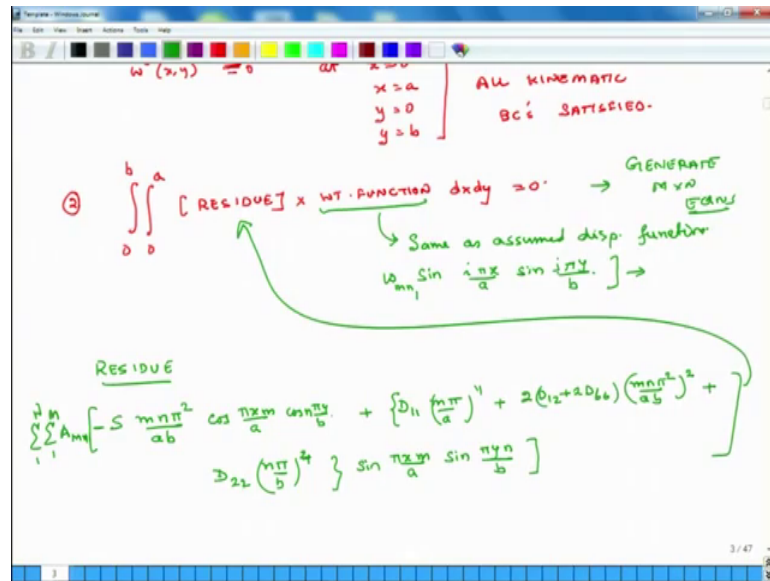 Template - Windows Journal
File Edit View Insert Actions Tools Help
B I
w (x,y) = 0 at x=0
x=a
y=0
y=b
ALL KINEMATIC
BC's SATISFIED.
② ∫₀ᵇ∫₀ᵃ [RESIDUE] x WT. FUNCTION dxdy = 0 →
GENERATE
M x N
EQNS
→ Same as assumed disp. function
w_mn₁ sin iπx/a sin jπy/b ] →
RESIDUE
Σ₁ᴺ Σ₁ᴹ A_mn [ -S mnπ²/ab cos πxm/a cos nπy/b + { D₁₁ (mπ/a)⁴ + 2(D₁₂+2D₆₆) (mnπ²/ab)² +
D₂₂ (nπ/b)⁴ } sin πxm/a sin πyn/b ]
3 / 47
3